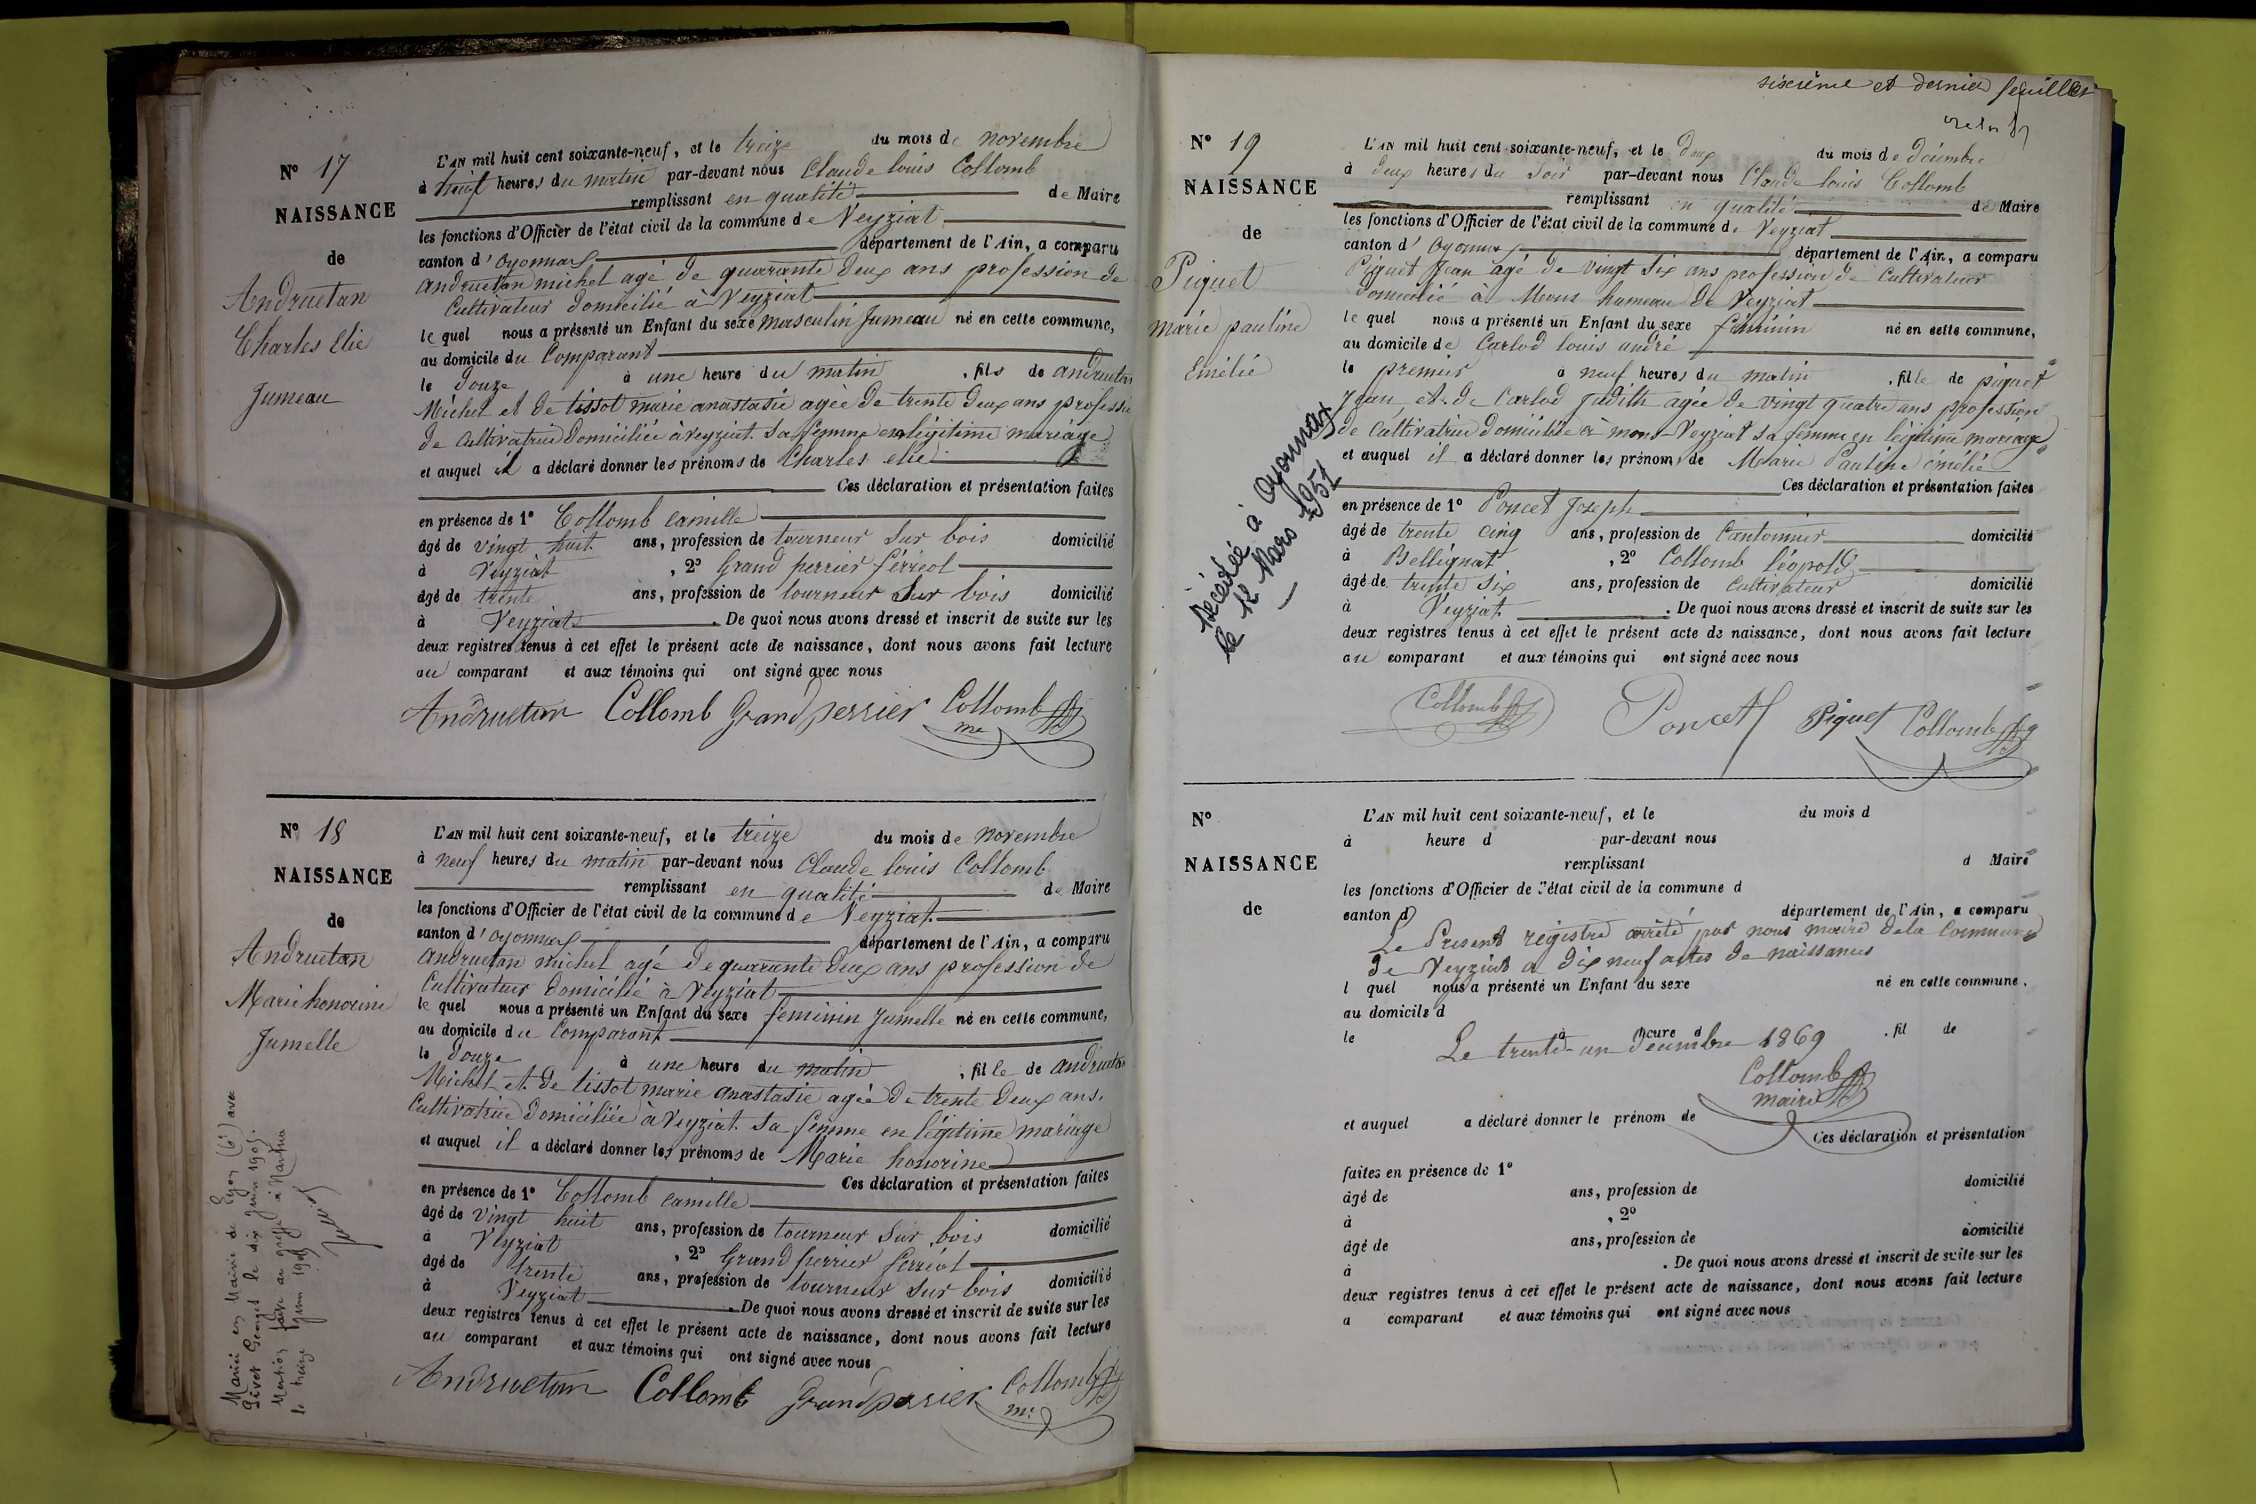 N° 17
NAISSANCE
de
Andruetan
Charles Elie
Jumeau
L'AN mil huit cent soixante-neuf, et le treize du mois de novembre
à neuf heures du matin par-devant nous Claude louis Collomb
remplissant en qualité de Maire
les fonctions d'Officier de l'état civil de la commune de Veyziat
canton d'oyonnax département de l'Ain, a comparu
andruetan michel agé de quarante deux ans profession de
Cultivateur domicilié à Veyziat
le quel nous a présenté un Enfant du sexe masculin Jumeau né en cette commune,
au domicile du Comparant
le douze à une heure du matin, fils de andruetan
Michel et de tissot marie anastasie agée de trente deux ans professi
de Cultivatrice domiciliée à veyziat sa femme en légitime mariage
et auquel il a déclaré donner les prénoms de Charles elie
Ces déclaration et présentation faites
en présence de 1° Collomb Camille
âgé de vingt huit ans, profession de tourneur sur bois domicilié
à Veyziat, 2° Grand perrier ferréol
âgé de trente ans, profession de tourneur sur bois domicilié
à Veyziat. De quoi nous avons dressé et inscrit de suite sur les
deux registres tenus à cet effet le présent acte de naissance, dont nous avons fait lecture
au comparant et aux témoins qui ont signé avec nous
Andruetan Collomb Grandperrier Collomb
me
N° 18
NAISSANCE
de
Andruetan
Marie honorine
Jumelle
L'AN mil huit cent soixante-neuf, et le treize du mois de novembre
à neuf heures du matin par-devant nous Claude louis Collomb
remplissant en qualité de Maire
les fonctions d'Officier de l'état civil de la commune de Veyziat
canton d'oyonnax département de l'Ain, a comparu
andruetan michel agé de quarante deux ans profession de
Cultivateur domicilié à Veyziat
le quel nous a présenté un Enfant du sexe feminin Jumelle né en cette commune,
au domicile du Comparant
le douze à une heure du matin, fille de andruetan
Michel et de tissot marie anastasie agée de trente deux ans.
Cultivatrice domiciliée à Veyziat sa femme en légitime mariage
et auquel il a déclaré donner les prénoms de Marie honorine
Ces déclaration et présentation faites
en présence de 1° Collomb camille
âgé de vingt huit ans, profession de tourneur sur bois domicilié
à Veyziat, 2° Grand perrier ferréol
âgé de trente ans, profession de tourneur sur bois domicilié
à Veyziat. De quoi nous avons dressé et inscrit de suite sur les
deux registres tenus à cet effet le présent acte de naissance, dont nous avons fait lecture
au comparant et aux témoins qui ont signé avec nous
Andruetan Collomb Grandperrier Collomb
me
Mariée en Mairie de Lyon (6e) avec
Georges le dix juin 1905.
Mention faite au greffe à Nantua
le treize juin 1905
sixième et dernier feuillet
N° 19
NAISSANCE
de
Piquet
marie pauline
Emélie
Décédée à Oyonnax
le 12 Mars 1951
L'AN mil huit cent soixante-neuf, et le deux du mois de décembre
à deux heures du soir par-devant nous Claude louis Collomb
remplissant en qualité de Maire
les fonctions d'Officier de l'état civil de la commune de Veyziat
canton d'oyonnax département de l'Ain, a comparu
Piquet Jean agé de vingt six ans profession de Cultivateur
domicilié à Mons hameau de Veyziat
le quel nous a présenté un Enfant du sexe féminin né en cette commune,
au domicile de Carlod louis andré
le premier à neuf heures du matin, fille de piquet
Jean et de Carlod Judith agée de vingt quatre ans profession
de Cultivatrice domiciliée à mons-Veyziat sa femme en légitime mariage
et auquel il a déclaré donner les prénoms de Marie Pauline émélie
Ces déclaration et présentation faites
en présence de 1° Poncet Joseph
âgé de trente cinq ans, profession de Cantonnier domicilié
à Bellignat, 2° Collomb léopold
âgé de trente six ans, profession de Cultivateur domicilié
à Veyziat. De quoi nous avons dressé et inscrit de suite sur les
deux registres tenus à cet effet le présent acte de naissance, dont nous avons fait lecture
au comparant et aux témoins qui ont signé avec nous
Collomb Poncet Piquet Collomb
N°
NAISSANCE
de
L'AN mil huit cent soixante-neuf, et le du mois d
à heure d par-devant nous
remplissant d Maire
les fonctions d'Officier de l'état civil de la commune d
canton d département de l'Ain, a comparu
Le Present registre arrêté par nous maire de la Commune
de Veyziat a dix neuf actes de naissances
l quel nous a présenté un Enfant du sexe né en cette commune,
au domicile d
le à heure d, fil de
Le trente-un décembre 1869
Collomb
maire
et auquel a déclaré donner le prénom de
Ces déclaration et présentation
faites en présence de 1°
âgé de ans, profession de domicilié
à , 2°
âgé de ans, profession de domicilié
à . De quoi nous avons dressé et inscrit de suite sur les
deux registres tenus à cet effet le présent acte de naissance, dont nous avons fait lecture
a comparant et aux témoins qui ont signé avec nous